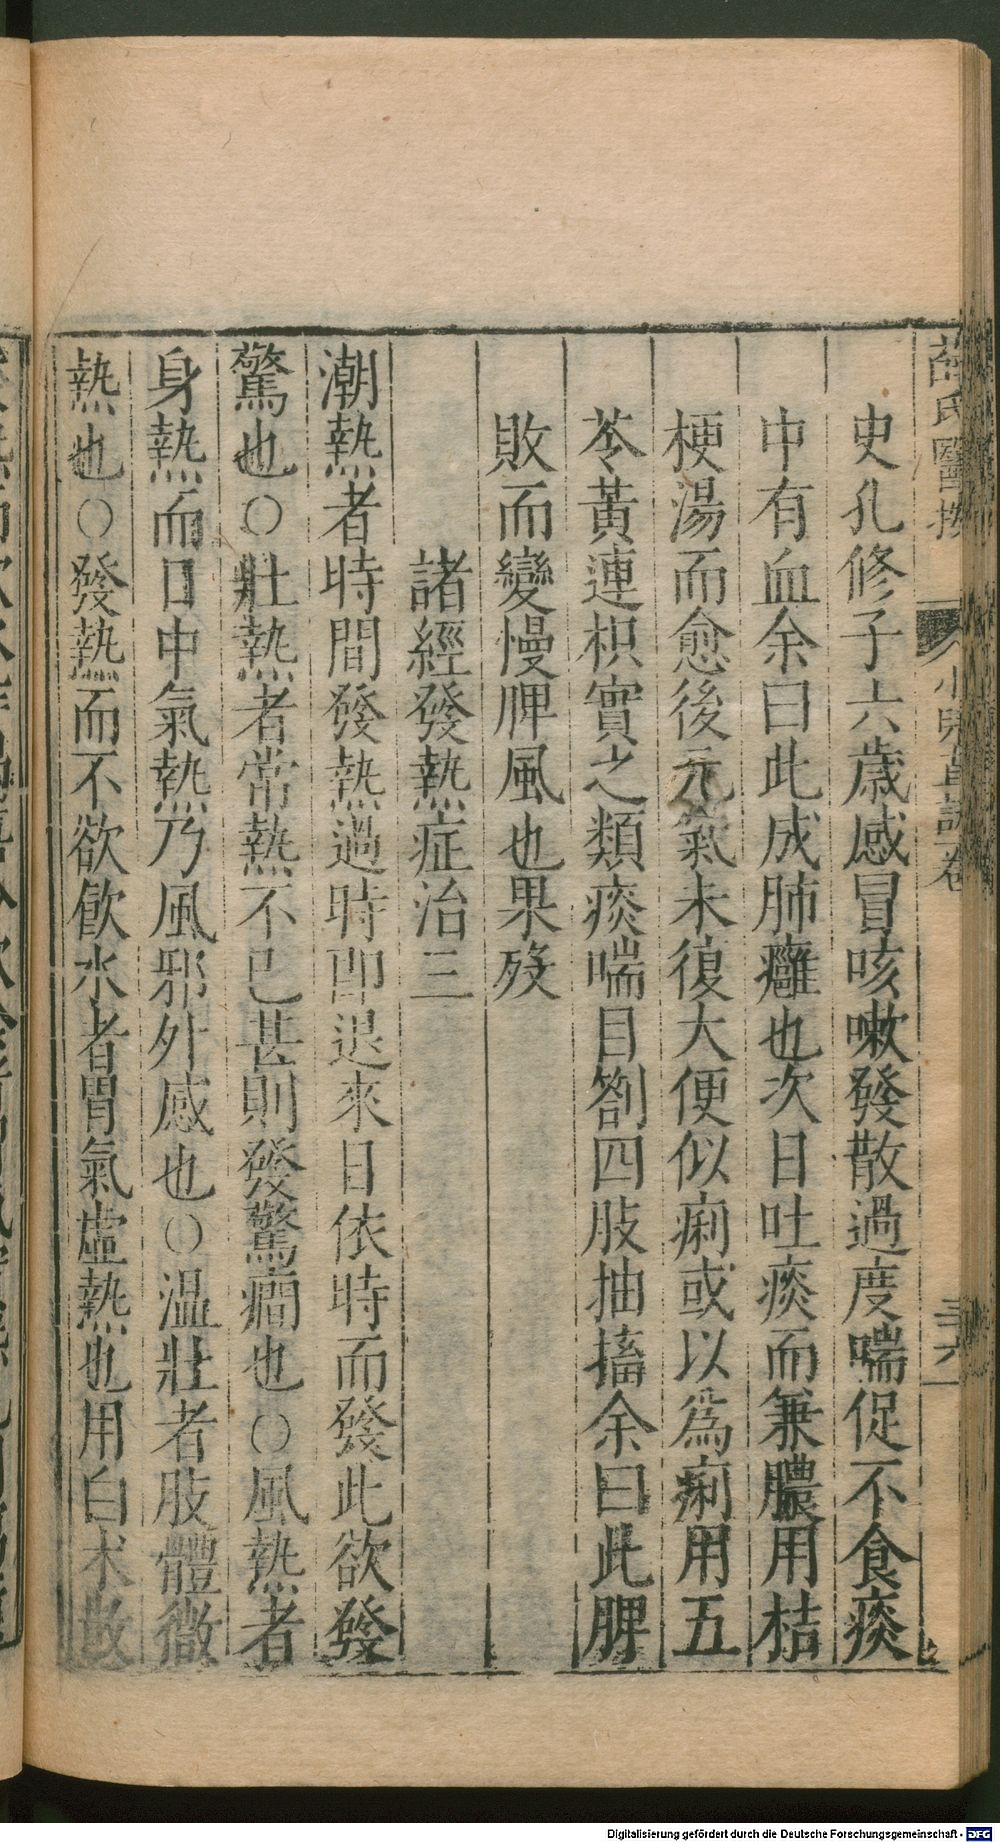 薛氏醫按 小兒直訣卷 三十六
史孔修子六歲感冒咳嗽發散過度喘促不食痰
中有血余曰此成肺癰也次日吐痰而兼膿用桔
梗湯而愈後元氣未復大便似痢或以爲痢用五
苓黃連枳實之類痰喘目劄四肢抽搐余曰此脾
敗而變慢脾風也果歿
諸經發熱症治三
潮熱者時間發熱過時即退來日依時而發此欲發
驚也○壯熱者常熱不已甚則發驚癎也○風熱者
身熱而口中氣熱乃風邪外感也○温壯者肢體微
熱也○發熱而不欲飲水者胃氣虛熱也用白术散
Digitalisierung gefördert durch die Deutsche Forschungsgemeinschaft - DFG